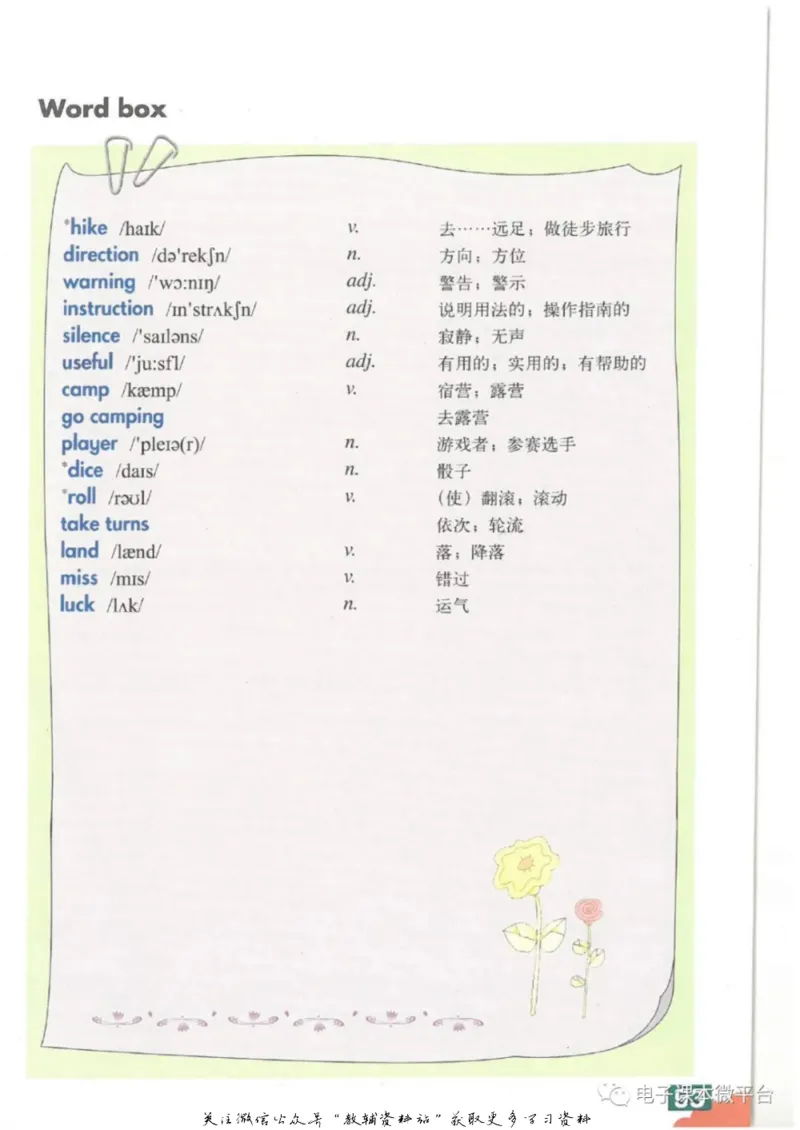 Word box
*hike /haɪk/ v. 去……远足；做徒步旅行
direction /də'rekʃn/ n. 方向；方位
warning /'wɔ:nɪŋ/ adj. 警告；警示
instruction /ɪn'strʌkʃn/ adj. 说明用法的；操作指南的
silence /'saɪləns/ n. 寂静；无声
useful /'ju:sfl/ adj. 有用的；实用的；有帮助的
camp /kæmp/ v. 宿营；露营
go camping 去露营
player /'pleɪə(r)/ n. 游戏者；参赛选手
*dice /daɪs/ n. 骰子
*roll /rəʊl/ v. （使）翻滚；滚动
take turns 依次；轮流
land /lænd/ v. 落；降落
miss /mɪs/ v. 错过
luck /lʌk/ n. 运气
电子课本微平台
93
关注微信公众号“教辅资料站”获取更多学习资料